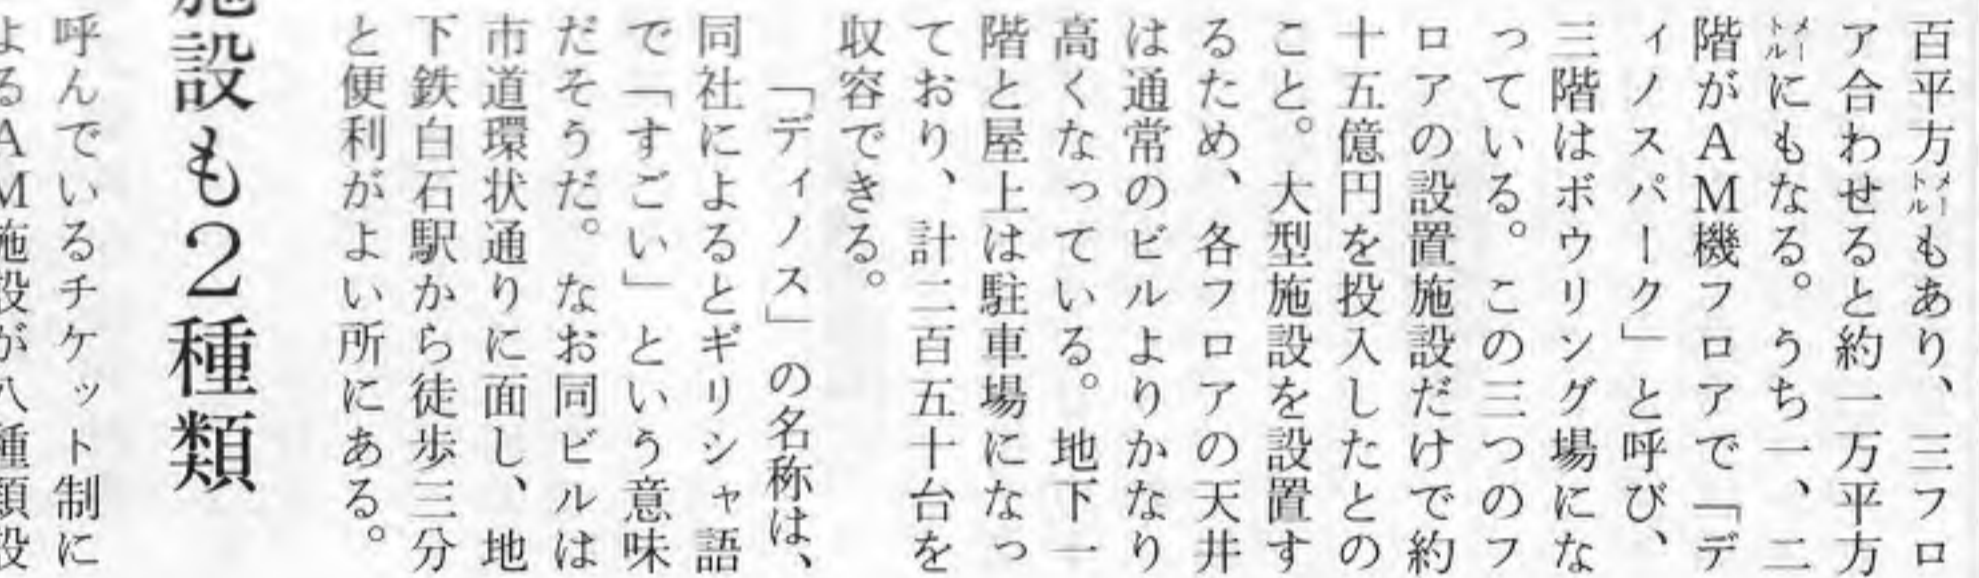 百平方メートルもあり、三フロ
ア合わせると約一万平方
メートルにもなる。うち一、二
階がＡＭ機フロアで「デ
ィノスパーク」と呼び、
三階はボウリング場にな
っている。この三つのフ
ロアの設置施設だけで約
十五億円を投入したとの
こと。大型施設を設置す
るため、各フロアの天井
は通常のビルよりかなり
高くなっている。地下一
階と屋上は駐車場になっ
ており、計二百五十台を
収容できる。
「ディノス」の名称は、
同社によるとギリシャ語
で「すごい」という意味
だそうだ。なお同ビルは
市道環状通りに面し、地
下鉄白石駅から徒歩三分
と便利がよい所にある。
施設も２種類
呼んでいるチケット制に
よるＡＭ施設が八種類設